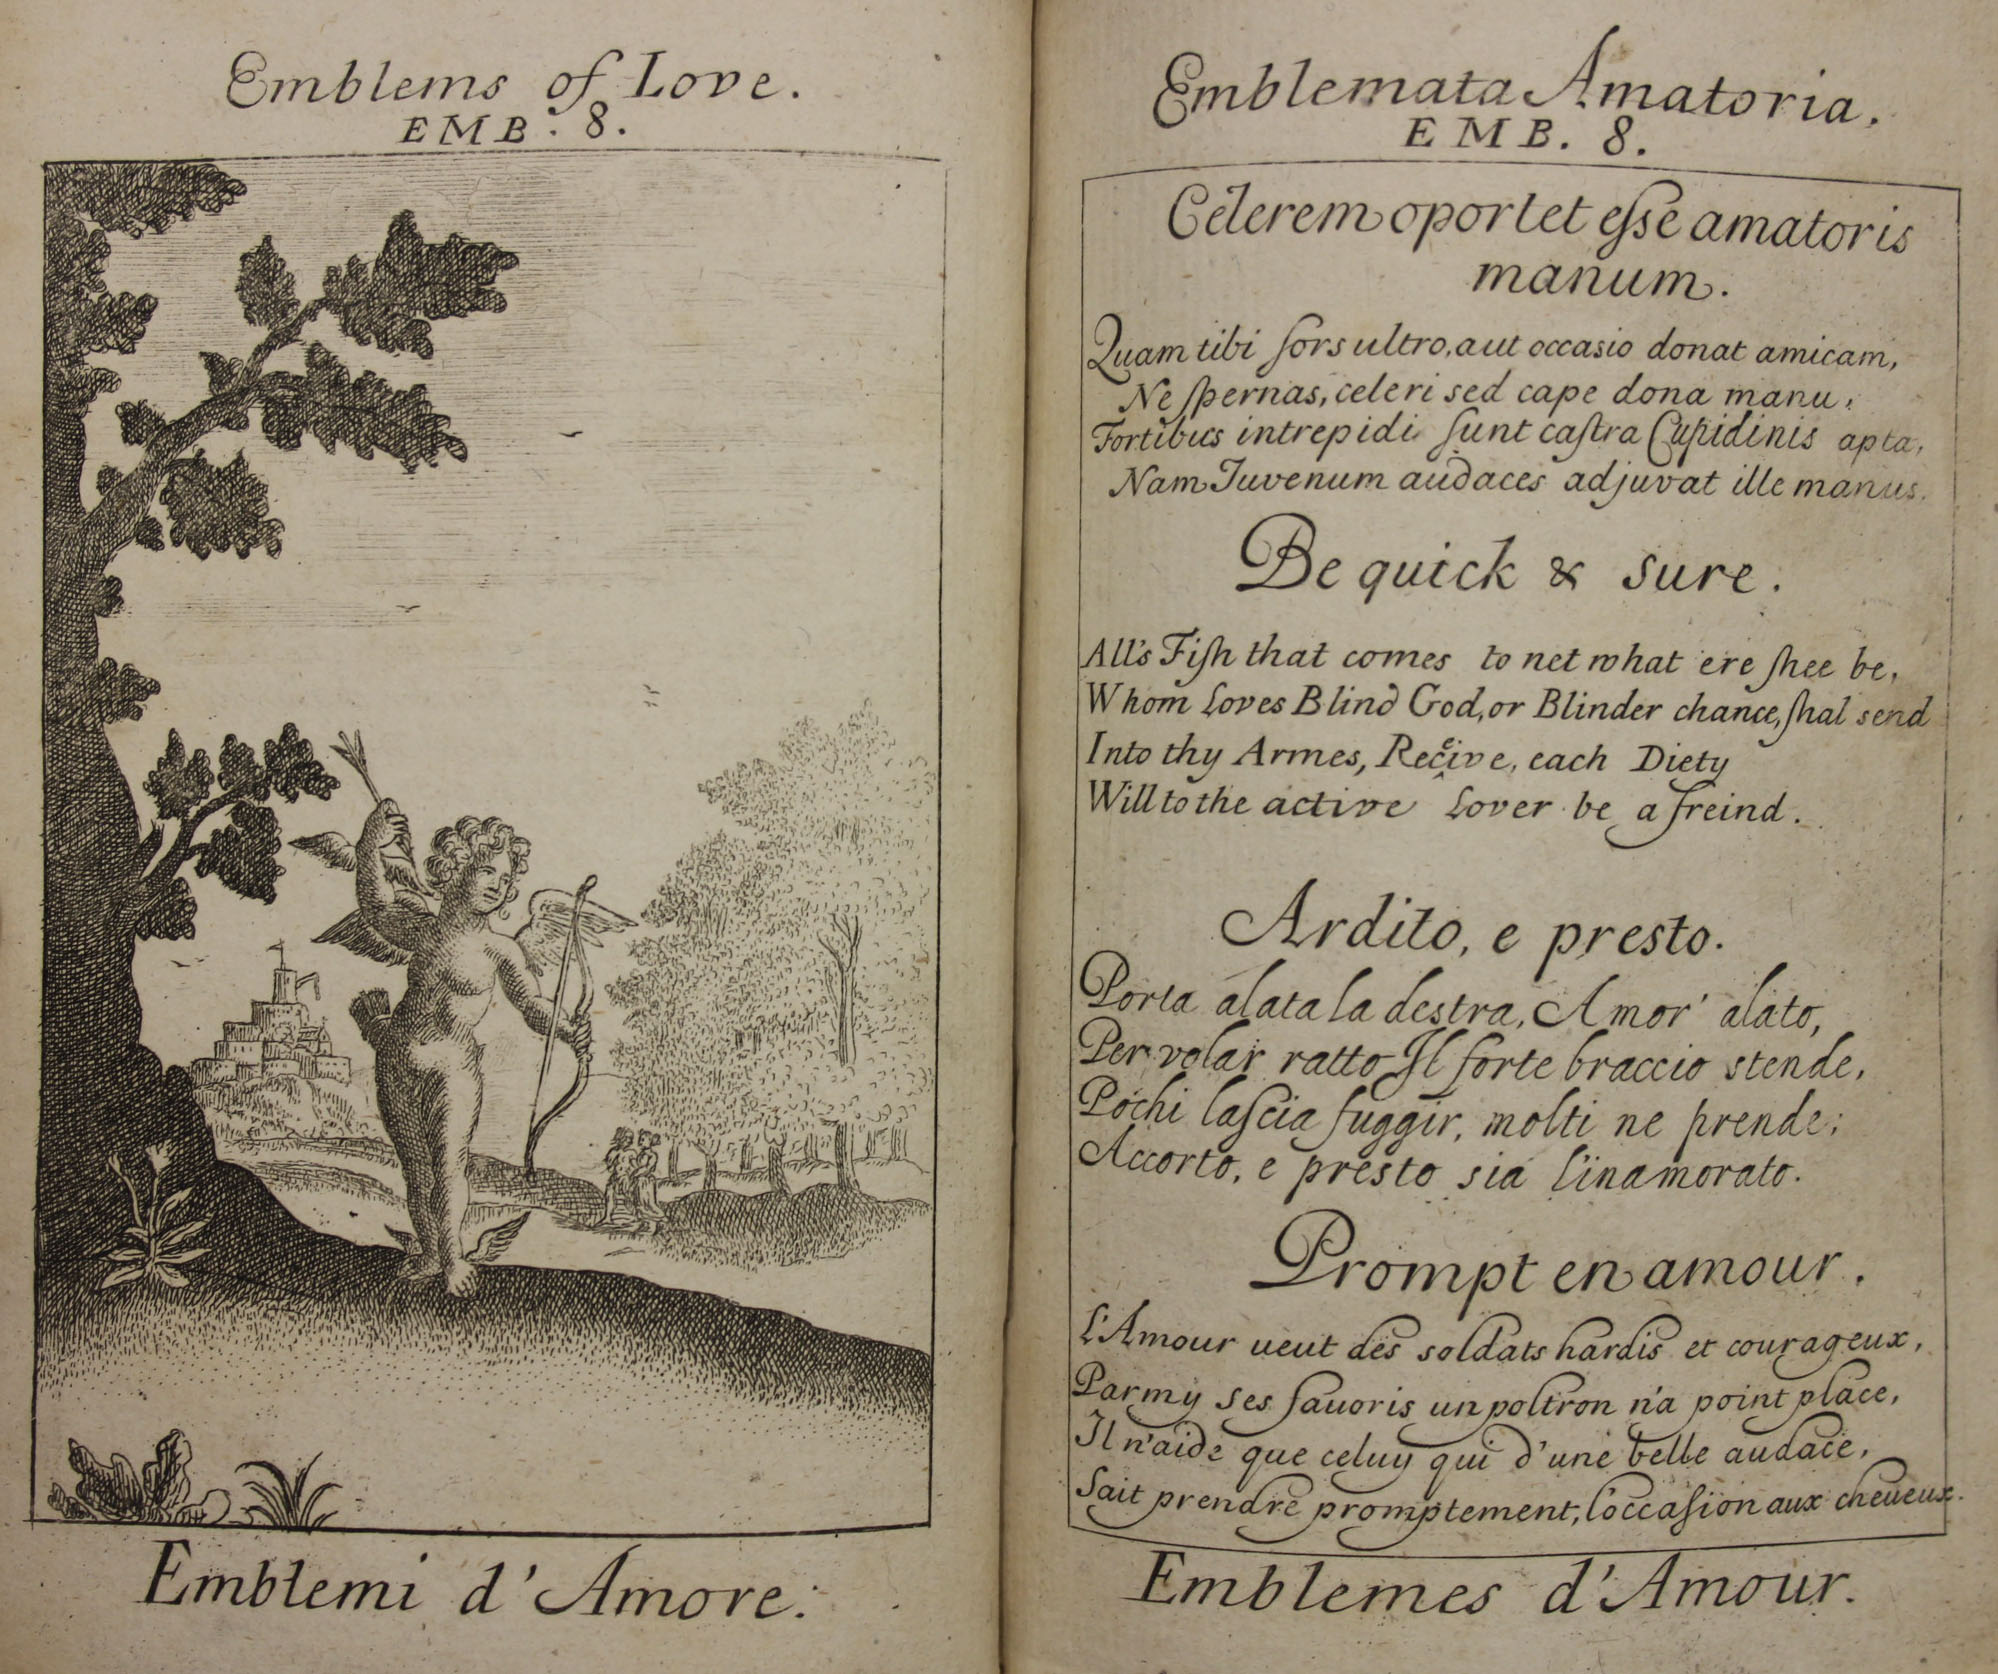 Emblems of Love.
EMB. 8.
Emblemi d'Amore:
Emblemata Amatoria.
EMB. 8.
Celerem oportet eſse amatoris
manum.
Quam tibi ſors ultro, aut occasio donat amicam,
Ne ſpernas, celeri sed cape dona manu,
Fortibus intrepidi ſunt caſtra Cupidinis apta,
Nam Juvenum audaces adjuvat ille manus.
Be quick & sure.
All's Fiſh that comes to net what ere ſhee be,
Whom Loves Blind God, or Blinder chance, ſhal send
Into thy Armes, Receive, each Diety
Will to the active Lover be a freind.
Ardito, e presto.
Porta alata la destra, Amor' alato,
Per volar ratto Il forte braccio stende,
Pochi laſcia fuggir, molti ne prende;
Accorto, e presto sia l'inamorato.
Prompt en amour.
L'Amour ueut des soldats hardis et courageux,
Parmy ses fauoris un poltron n'a point place,
Il n'aide que celuy qui d'une belle audace,
Sait prendre promptement, l'occaſion aux cheueux.
Emblemes d'Amour.